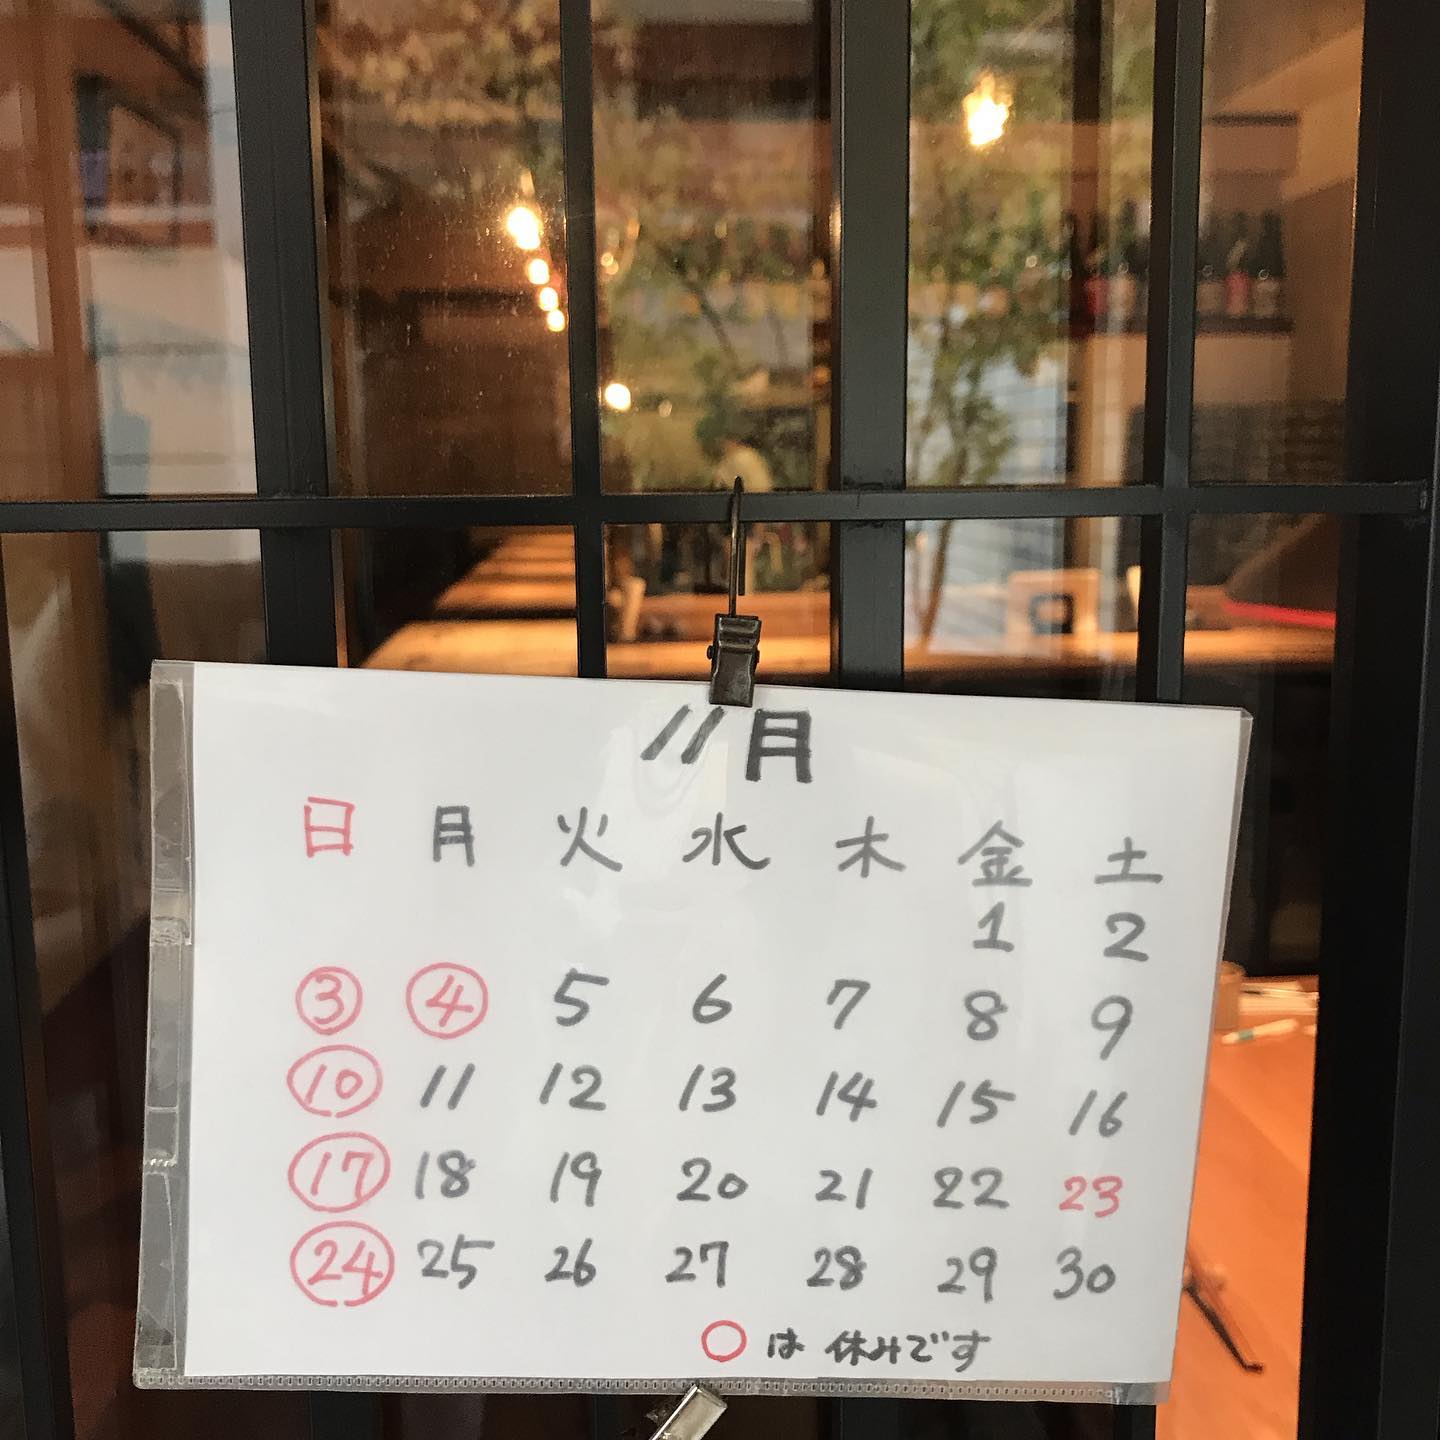 11月
日 月 火 水 木 金 土
1 2
3 4 5 6 7 8 9
10 11 12 13 14 15 16
17 18 19 20 21 22 23
24 25 26 27 28 29 30
○は 休みです